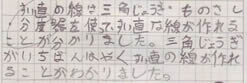 垂直の線を三角じょうぎ、ものさし
分度器を使って垂直な線が作れる
ことが分かりました。三角じょうぎ
がいちばんはやく垂直の線が作れ
ることがわかりました。